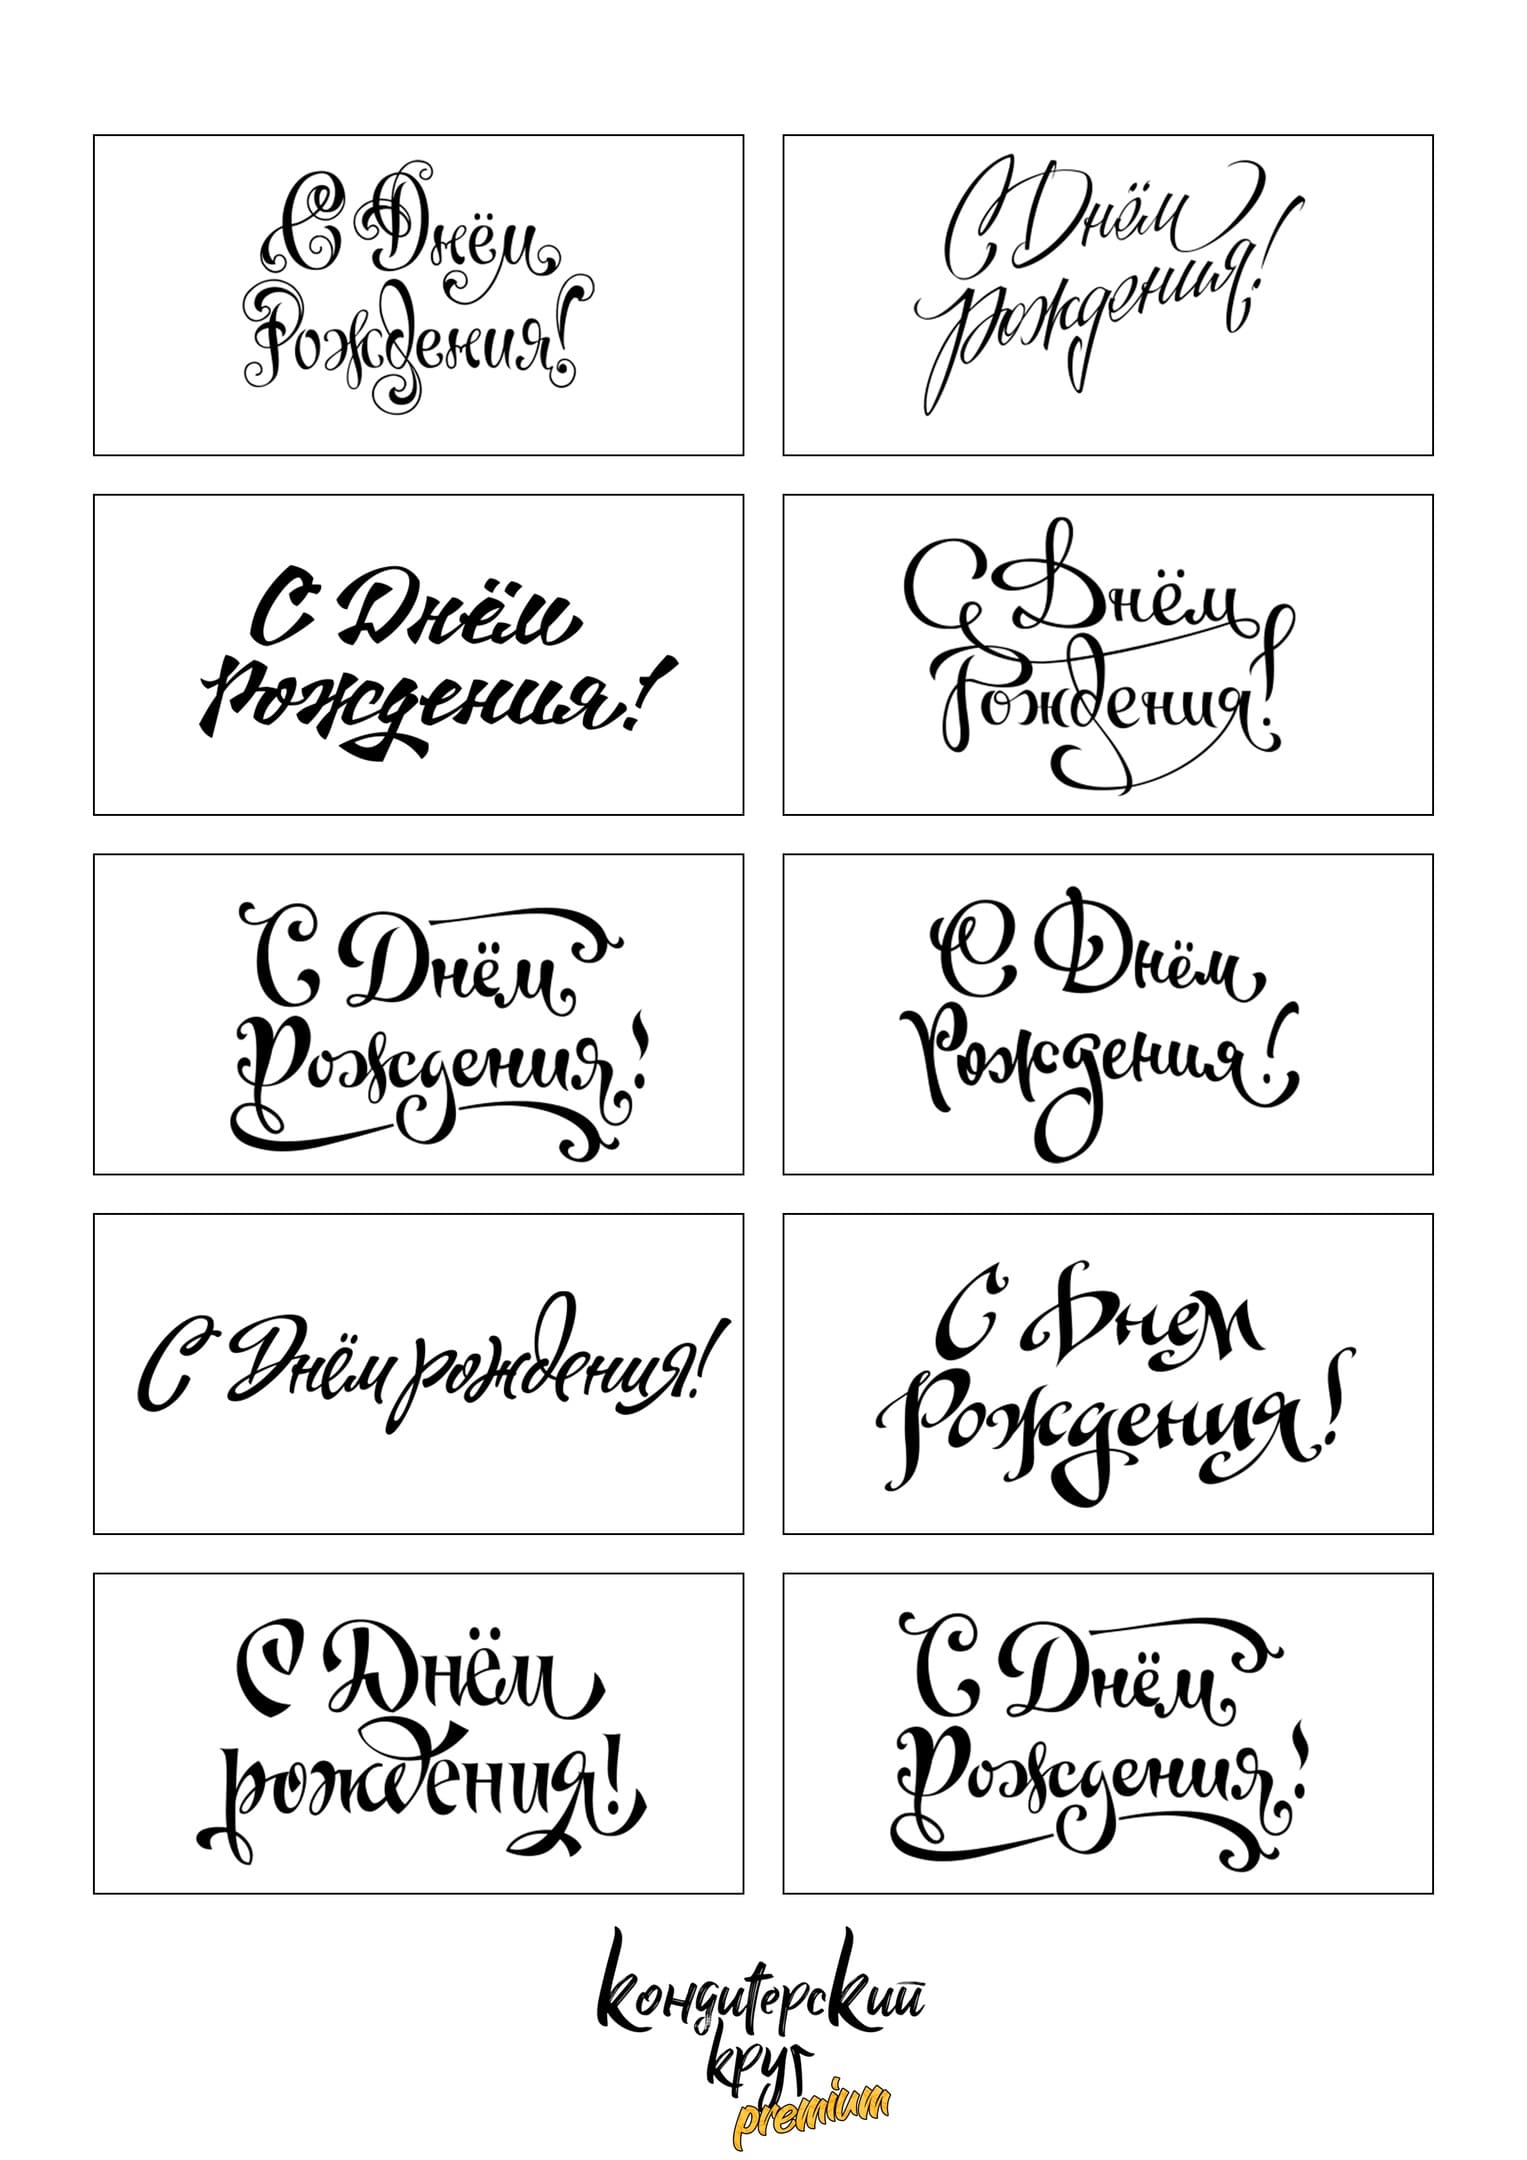 С Днём
Рождения!
С Днём
рождения!
С Днём
Рождения!
С Днём
Рождения!
С Днём
Рождения!
С Днём
Рождения!
С Днём рождения!
С Днем
Рождения!
С Днём
рождения!
С Днём
Рождения!
Кондитерский
круг
premium